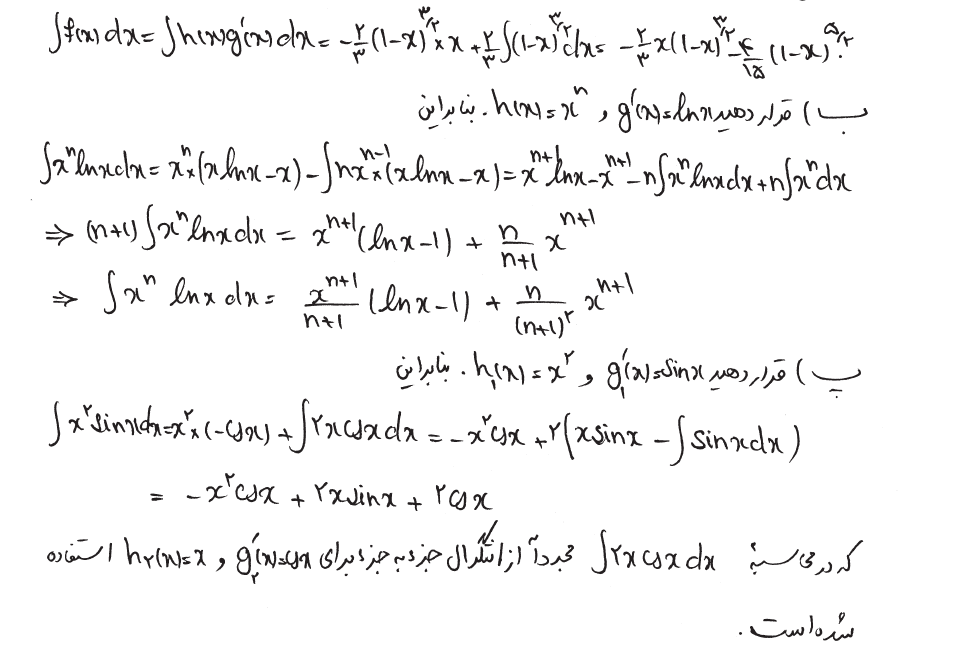 ∫f(x)dx = ∫h(x)g′(x)dx = -۲/۳(1-x)^(۳/۲) × x + ۲/۳∫(1-x)^(۳/۲)dx = -۲/۳x(1-x)^(۳/۲) - ۴/۱۵(1-x)^(۵/۲).
ب) قرار دهید g′(x)=lnx و h(x)=x^n. بنابراین
∫x^n lnxdx = x^n×(xlnx-x) - ∫nx^(n-1)×(xlnx-x) = x^(n+1)lnx - x^(n+1) - n∫x^n lnxdx + n∫x^n dx
⇒ (n+1)∫x^n lnxdx = x^(n+1)(lnx-1) + n/(n+1) x^(n+1)
⇒ ∫x^n lnx dx = x^(n+1)/(n+1) (lnx-1) + n/(n+1)^۲ x^(n+1)
پ) قرار دهید g′₁(x)=sinx و h₁(x)=x^۲. بنابراین
∫x^۲sinxdx = x^۲×(-cosx) + ∫۲xcosxdx = -x^۲cosx + ۲(xsinx - ∫sinxdx)
= -x^۲cosx + ۲xsinx + ۲cosx
که در محاسبهٔ ∫۲xcosxdx مجدداً از انتگرال جزء به جزء برای g′₂(x)=cosx و h₂(x)=x استفاده
شده است.